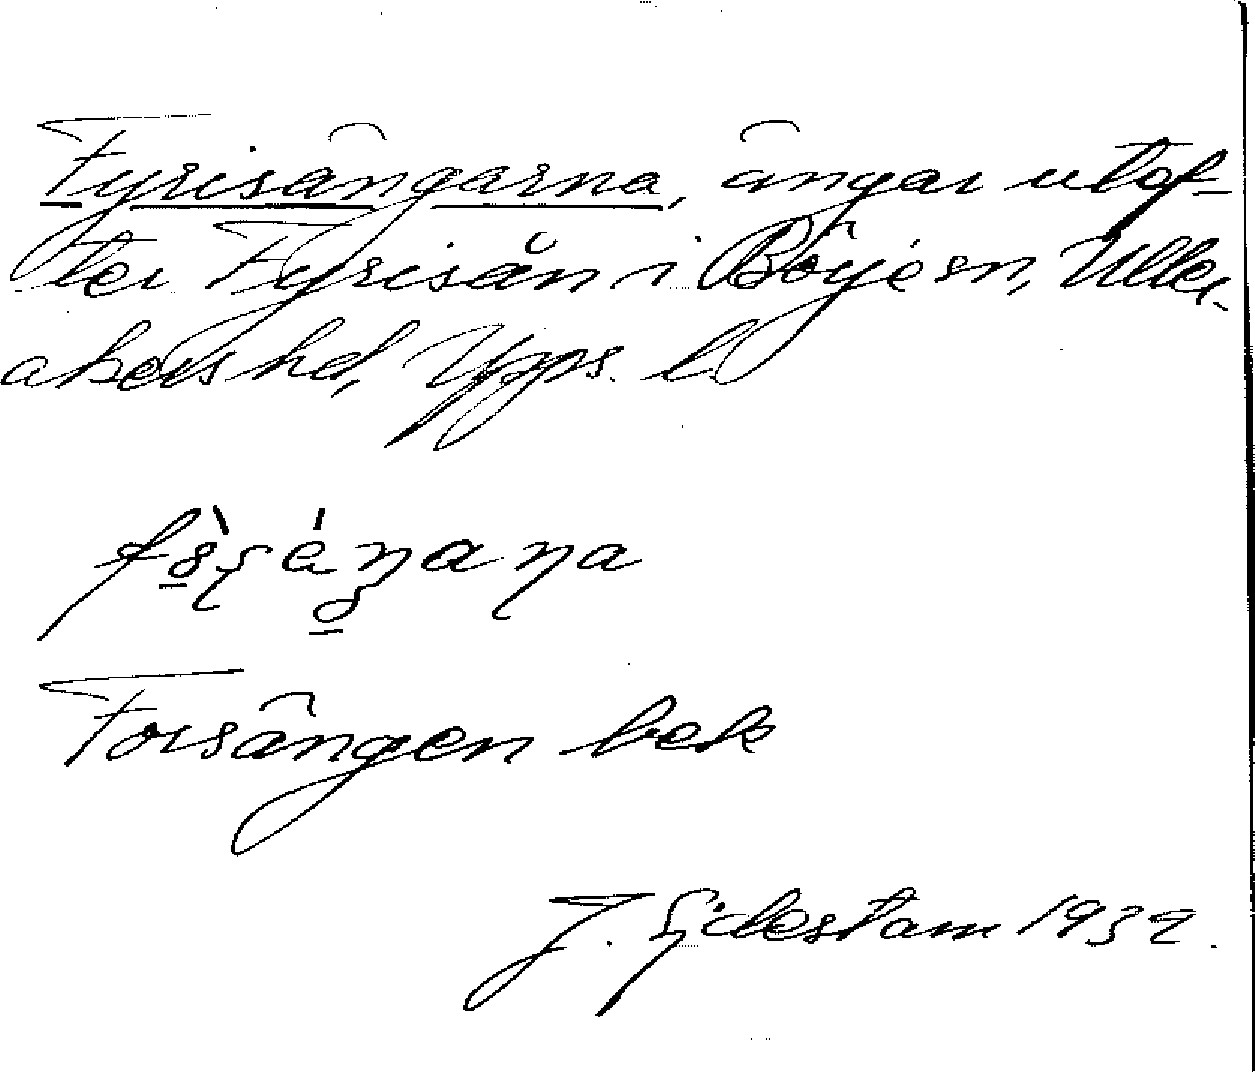 Fyrisängarna, ängar utef-
ter Fyrisån i Börje sn, Uller-
akers hd, Upps. l.
Forsängen bek
J. Sidestam 1932.